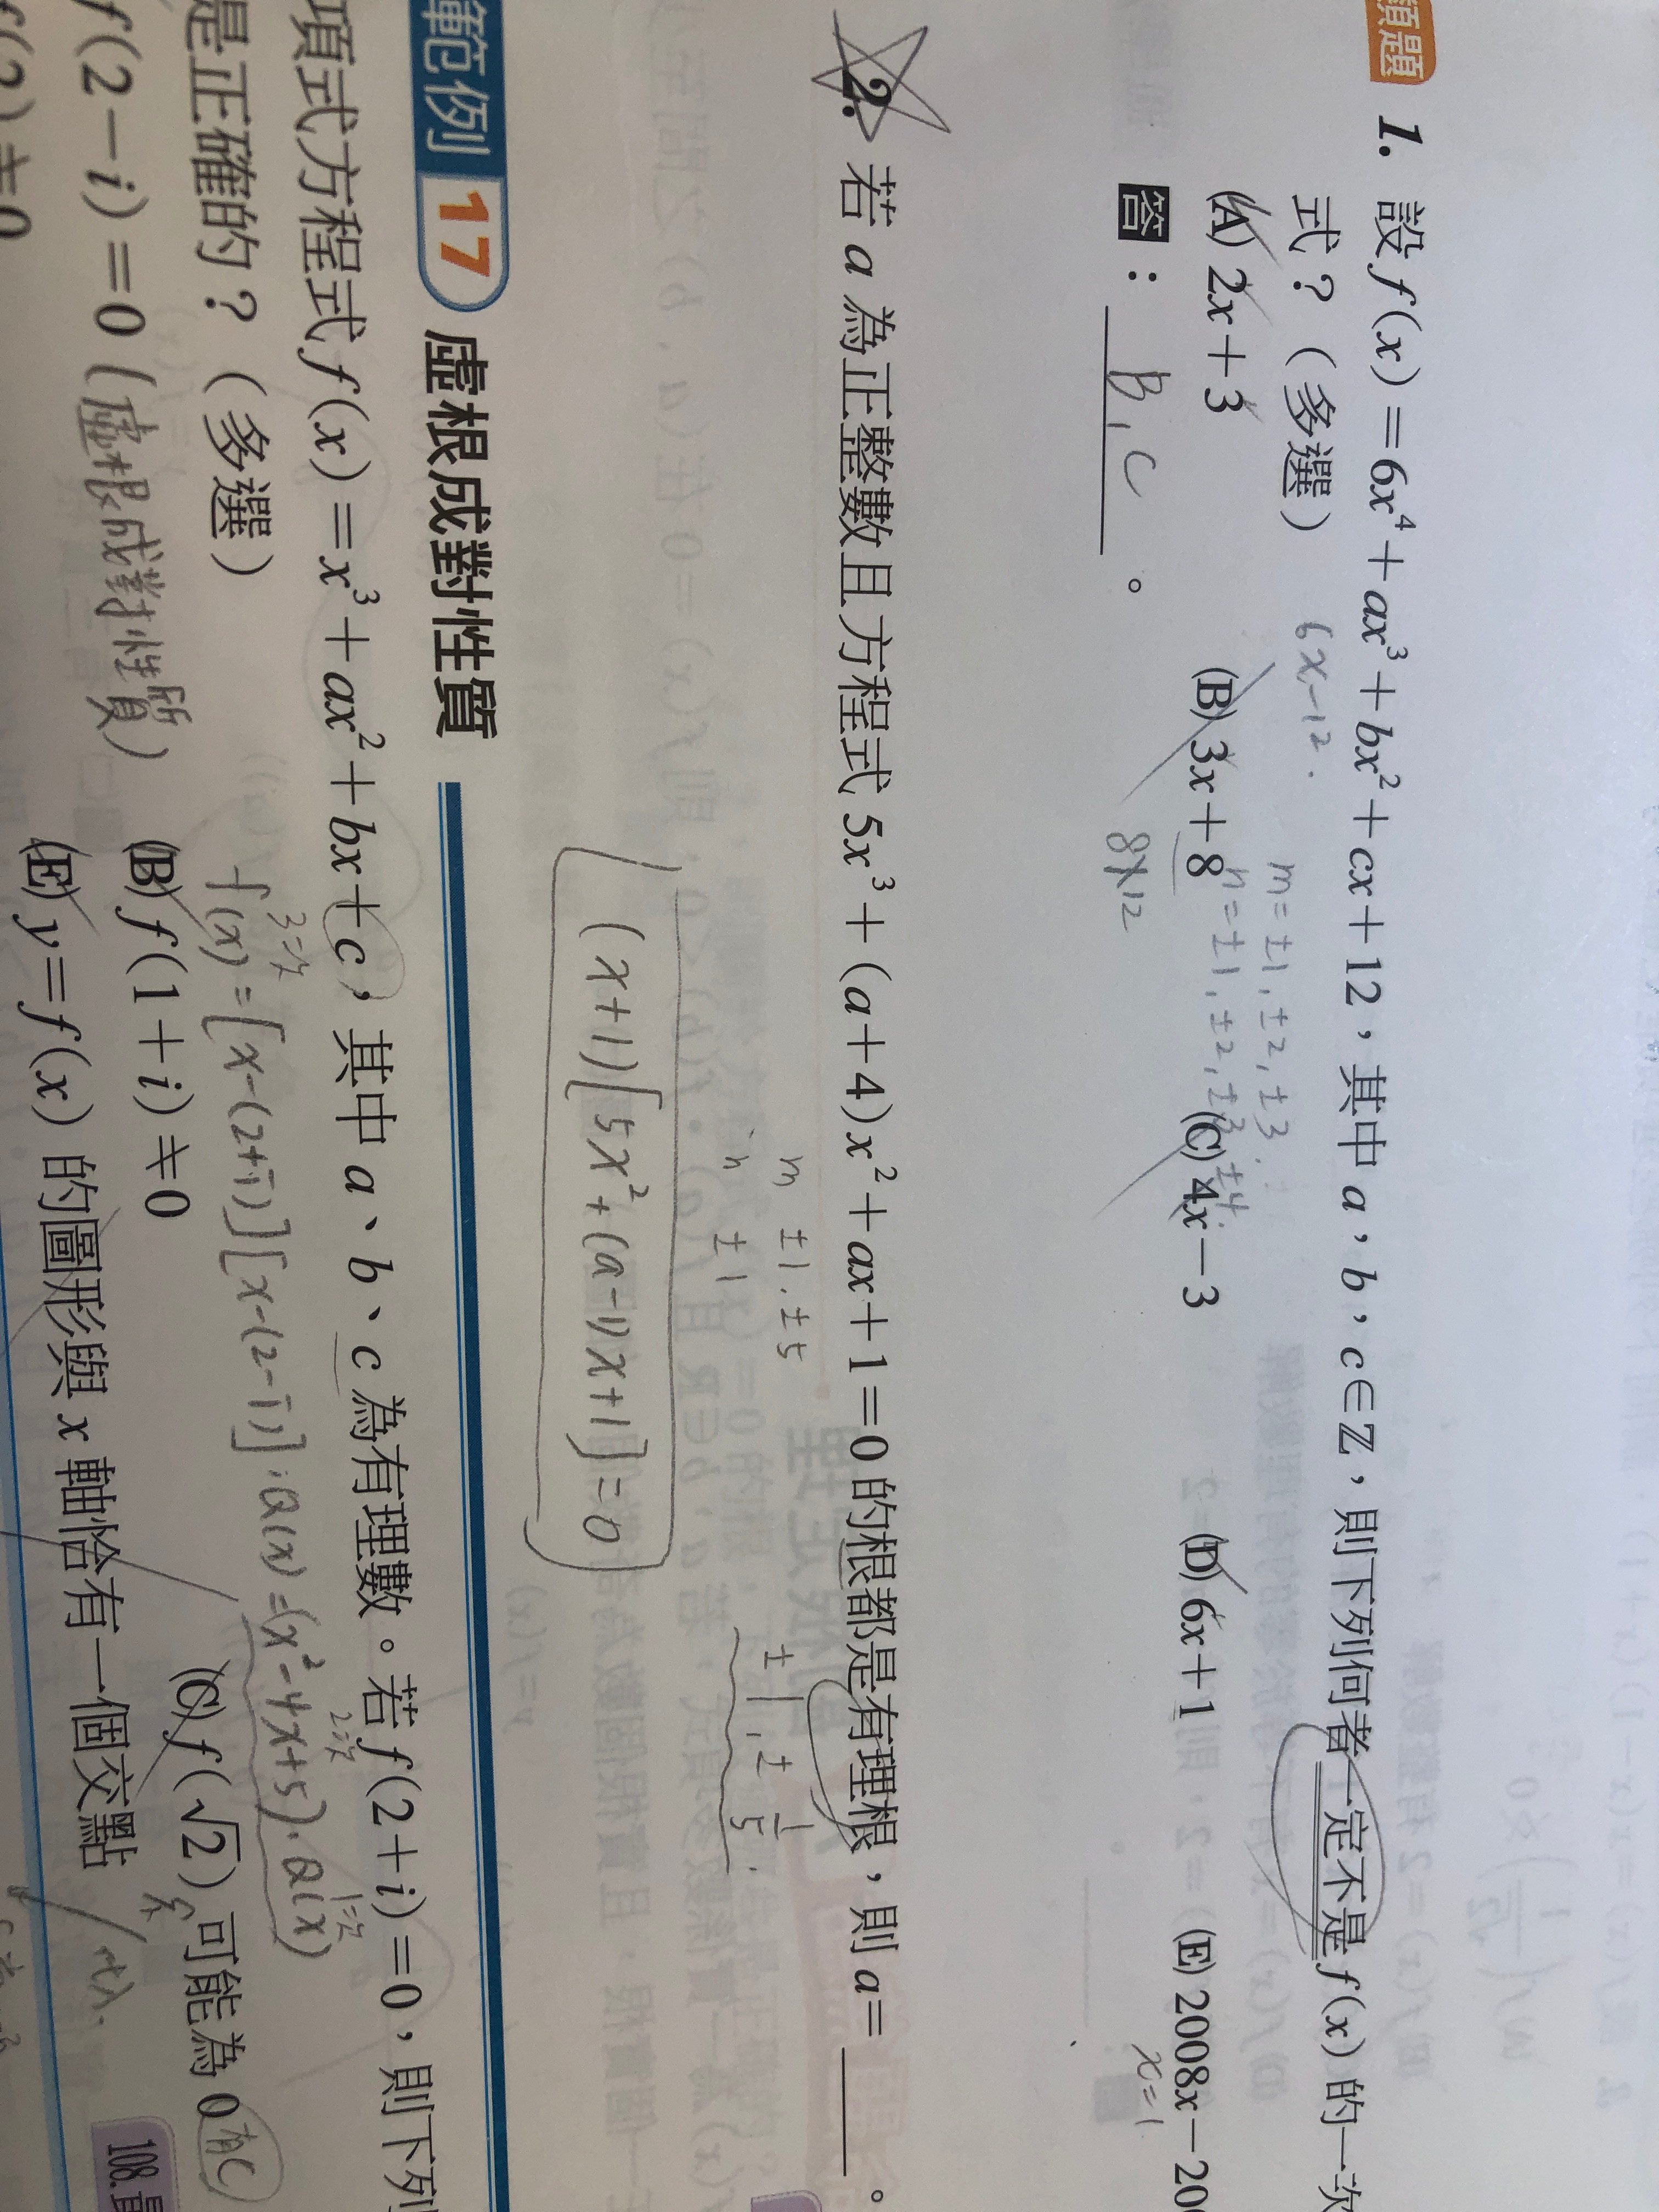 類題 1. 設 f(x)=6x⁴+ax³+bx²+cx+12，其中 a，b，c∈ℤ，則下列何者一定不是 f(x) 的一次
式？（多選） 6x-12.
m=±1,±2,±3
n=±1,±2,±3,±4.
(A) 2x+3 (B) 3x+8 (C) 4x-3 (D) 6x+1 (E) 2008x-20
8∤12
x=1
答：B,C。
2. 若 a 為正整數且方程式 5x³+(a+4)x²+ax+1=0 的根都是有理根，則 a=＿＿。
m ±1,±5
n ±1
±1,±1/5.
(x+1)[5x²+(a-1)x+1]=0
範例 17 虛根成對性質
項式方程式 f(x)=x³+ax²+bx+c，其中 a、b、c 為有理數。若 f(2+i)=0，則下列
3次 2次 1次
f(x)=[x-(2+i)][x-(2-i)]·Q(x)=(x²-4x+5)·Q(x)
是正確的？（多選）
f(2-i)=0 (虛根成對性質) (B) f(1+i)≠0 (C) f(√2) 可能為 0
有C
f(2)≠0 (E) y=f(x) 的圖形與 x 軸恰有一個交點
108.